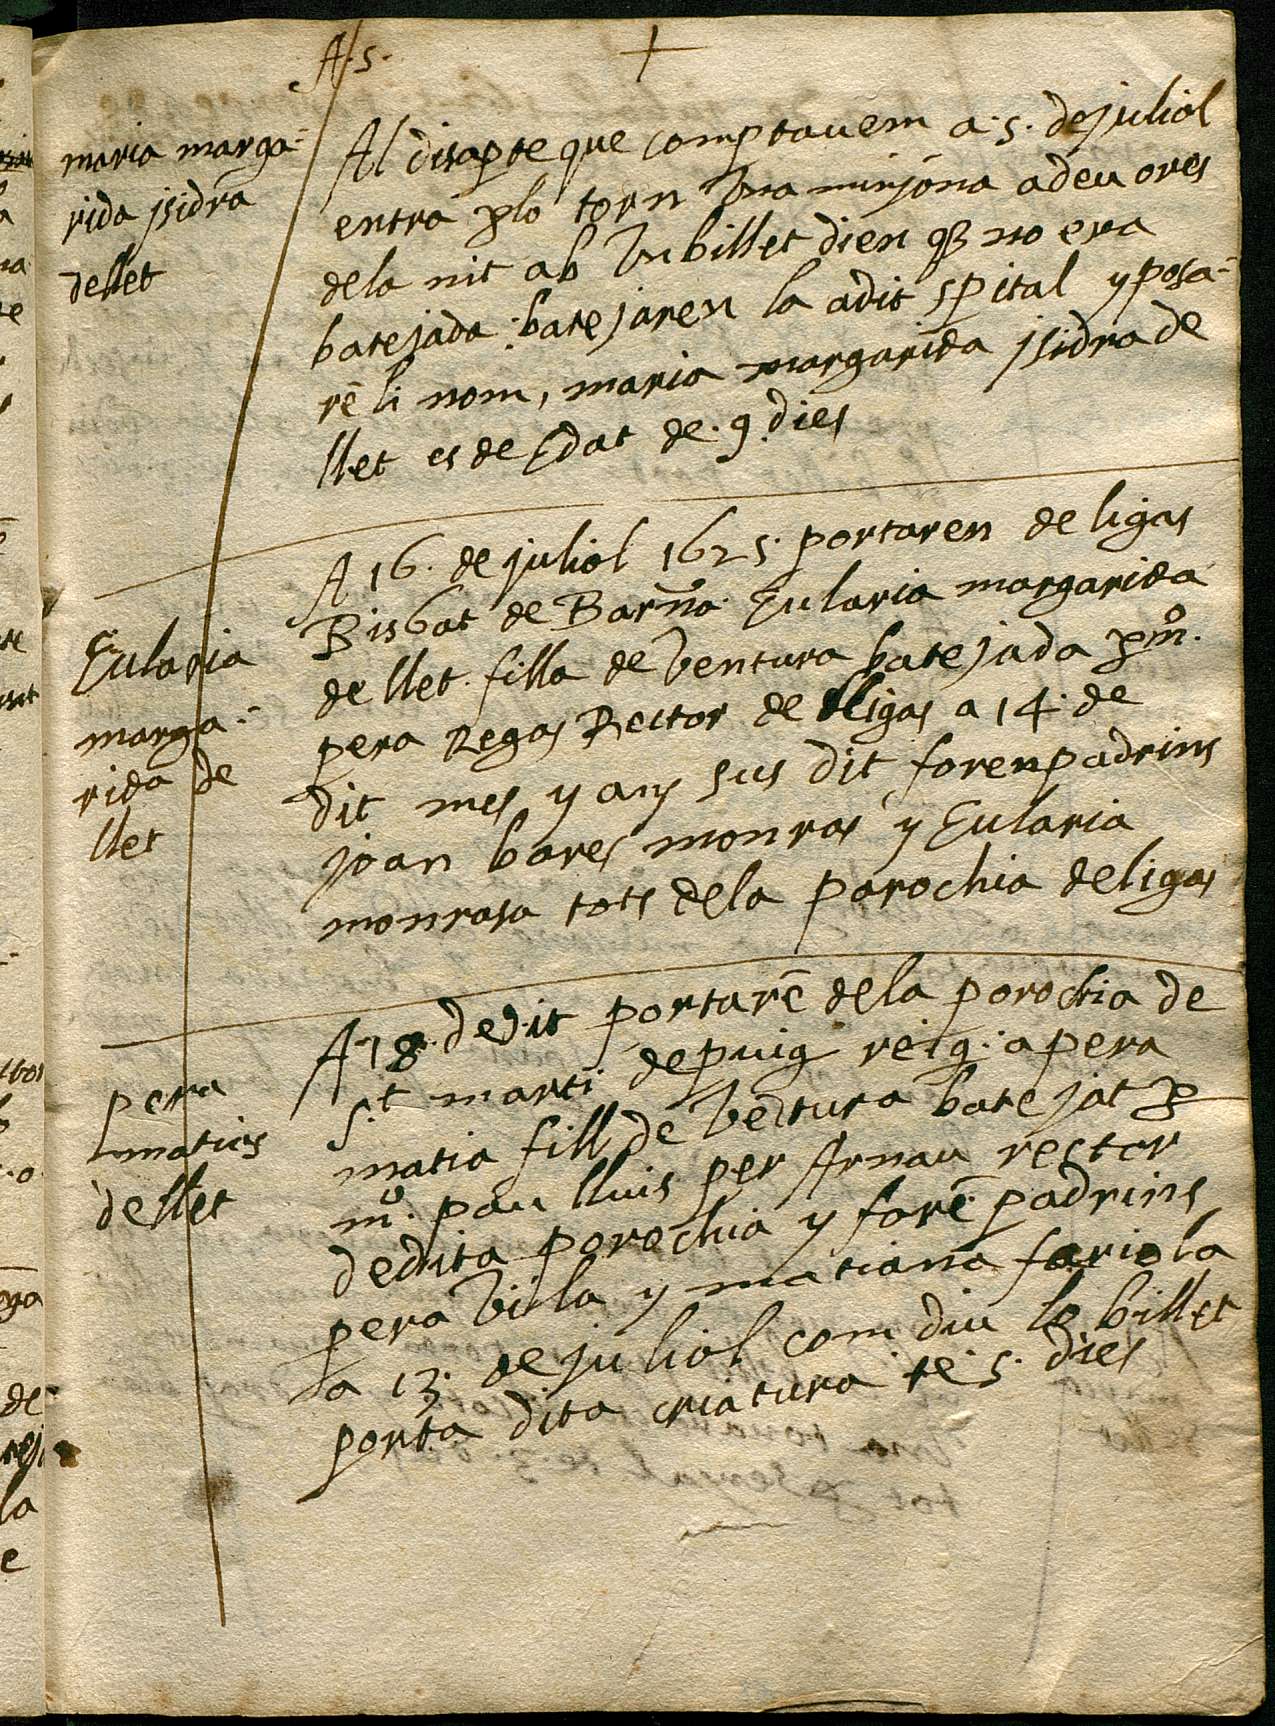 A·5·
maria marga=
rida jsidra
dellet
Al disapte que comptauem a·5· de juliol
entra plo torn vna minjona a deu ores
dela nit ab vn billet dien q̃ no era
batejada: batejaren la adit spital y posa=
rē li nom, maria margarida jsidra de
llet es de Edat de·9·dies
Eularia
marga=
rida de
llet
A 16· de juliol 1625· portaren de ligas
Bisbat de Barña· Eularia margarida
de llet· filla de ventura batejada p mº·
pera Regas Rector de lligas a 14· de
dit mes y any sus dit foren padrins
joan bares monras y Eularia
monrasa tots dela parochia de ligas
pera
matias
dellet
A 18· de dit portarē dela porochia de
S·t marti de puig reig· a pera
matia fill de ventura batejat p
mº· pau lluis per Arnau rector
de dita porochia y forē padrins
pera vila y matiana fariola
a 13· de juliol com diu lo billet
porta dita criatura te·5· dies